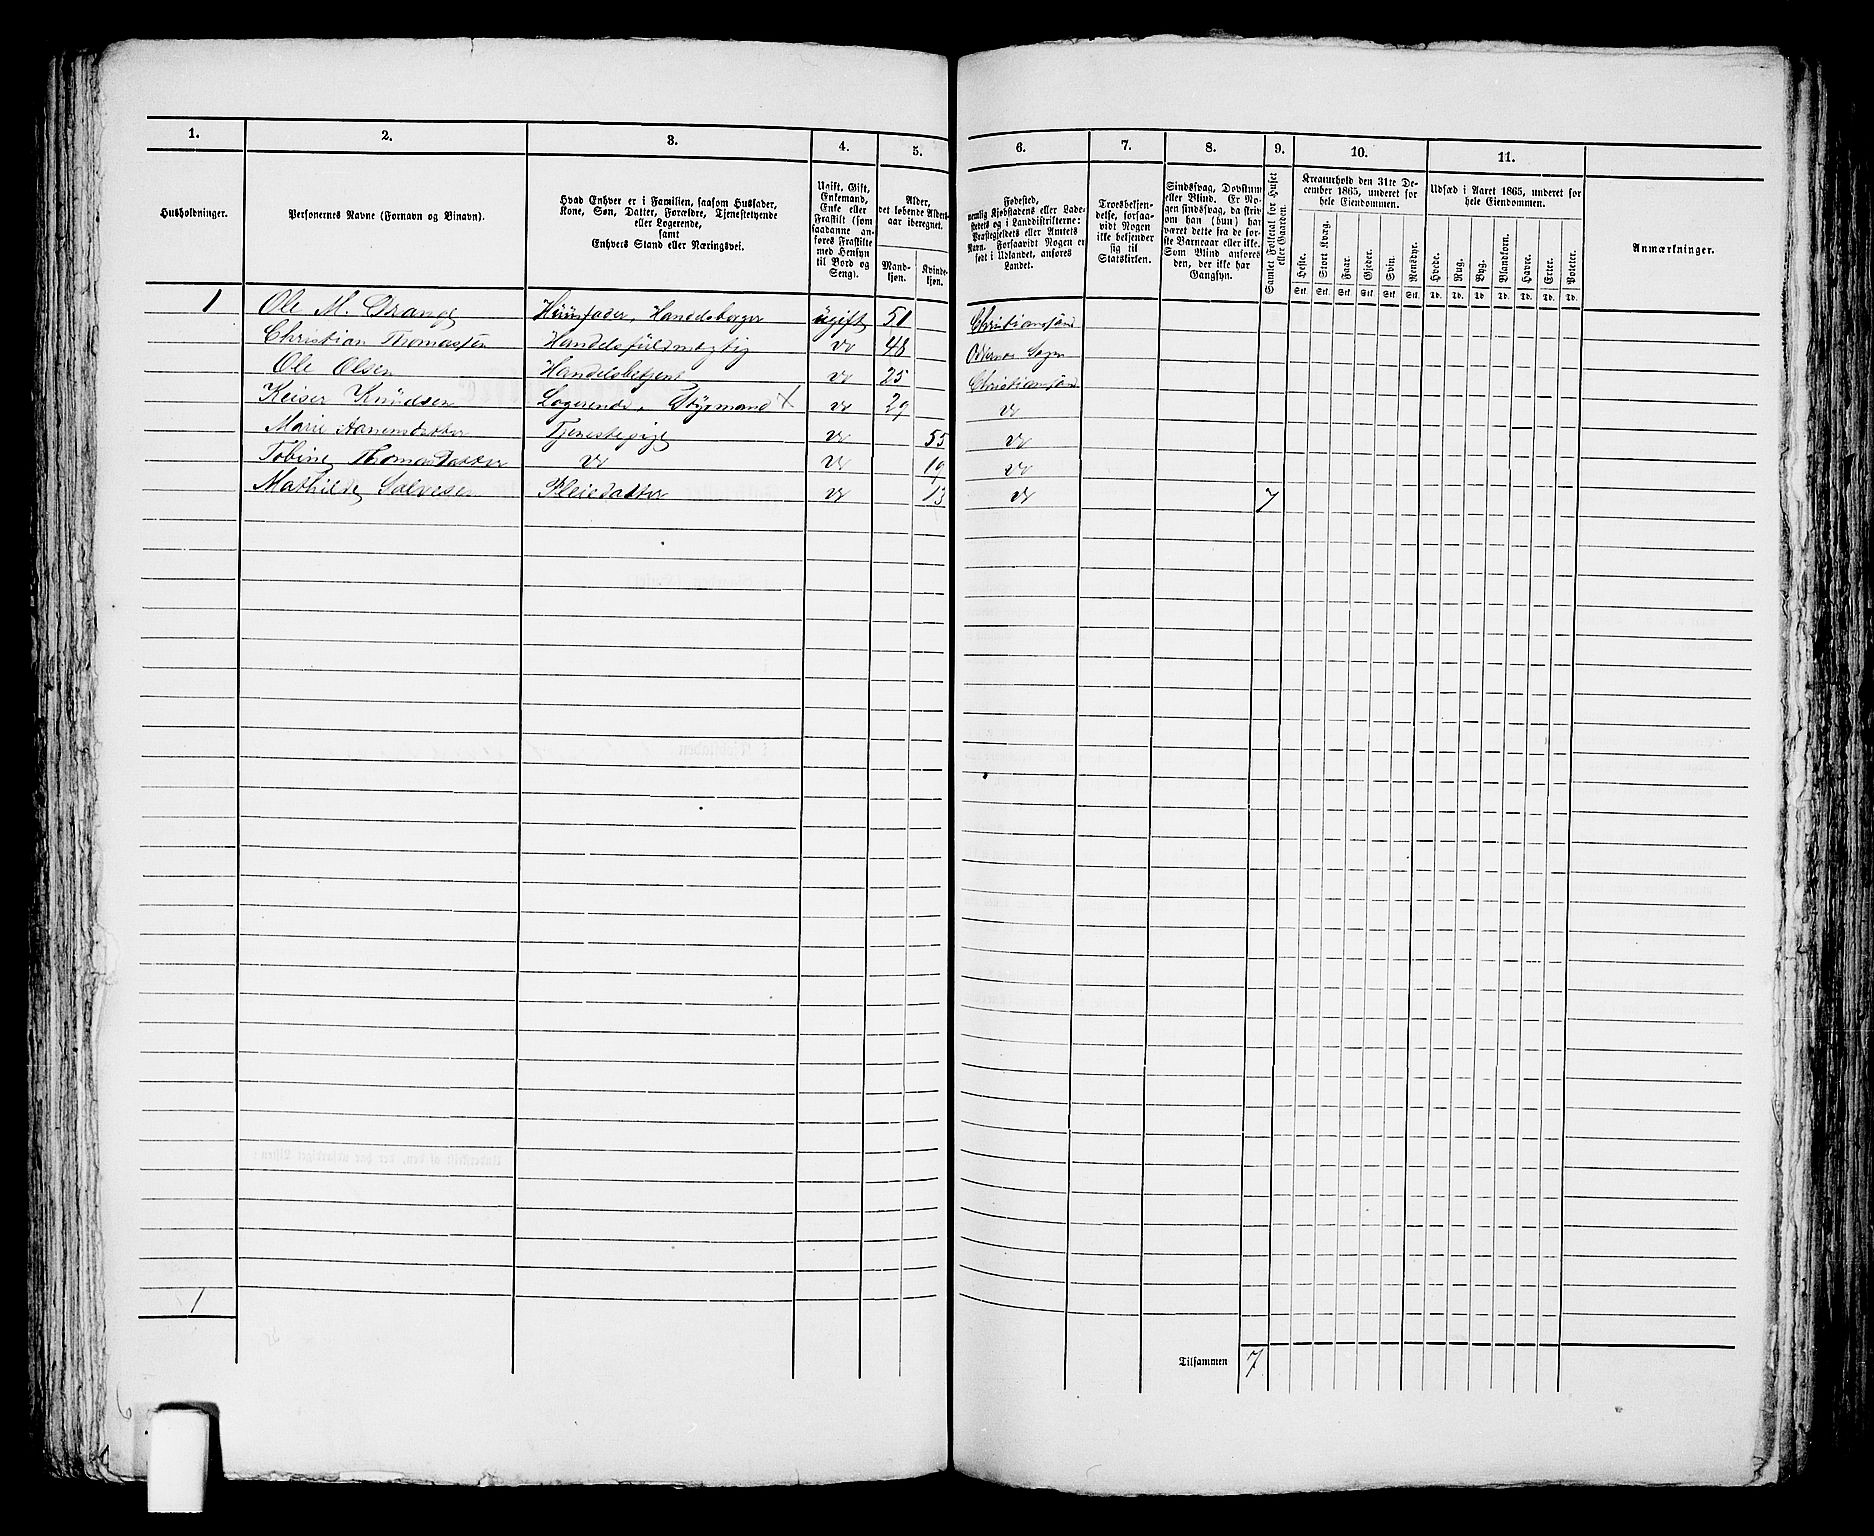 1. 2. 3. 4. 5. 6. 7. 8. 9. 10. 11.
Husholdninger.
Personernes Navne (Fornavn og Binavn).
Hvad Enhver er i Familien, saasom Husfader,
Kone, Søn, Datter, Forældre, Tjenestetyende
eller Logerende,
samt
Enhvers Stand eller Næringsvei.
Ugift, Gift,
Enkemand,
Enke eller
Fraskilt (som
saadanne an-
føres Fraskilte
med Hensyn
til Bord og
Seng).
Alder,
det løbende Alders-
aar iberegnet.
Mand-
kjøn.
Kvinde-
kjøn.
Fødested,
nemlig Kjøbstadens eller Lade-
stedets og i Landdistrikterne:
Præstegjeldets eller Amtets
Navn. Forsaavidt Nogen er
født i Udlandet, anføres
Landet.
Troesbekjen-
delse, forsaa-
vidt Nogen
ikke bekjender
sig til
Statskirken.
Sindssvag, Døvstum
eller Blind. Er No-
gen sindssvag, da skriv
om han (hun) har
været dette fra de før-
ste Barneaar eller ikke.
Som Blind anføres
den, der ikke har
Gangsyn.
Samlet Folketal for Huset
eller Gaarden.
Kreaturhold den 31te De-
cember 1865, underet for
hele Eiendommen.
Heste. Stort Kvæg. Faar. Gjeder. Svin. Rensdyr.
Stk. Stk. Stk. Stk. Stk. Stk.
Udsæd i Aaret 1865, underet for
hele Eiendommen.
Hvede. Rug. Byg. Blandkorn. Havre. Erter. Poteter.
Td. Td. Td. Td. Td. Td. Td.
Anmærkninger.
1 Ole M. Drange Huusfader, Handelsborger ugift 51 Christiansand
Christian Thomassen Handelsfuldmægtig do 48 Oddernes Sogn
Ole Olsen Handelsbetjent do 25 Christiansand
Keiser Knudsen Logerende, Styrmand X do 29 do
Marie Aanensdatter Tjenestepige do 55 do
Tobine Thomasdatter do do 19 do
Mathilde Salvesen Pleiedatter do 13 do 7
1
Tilsammen 7